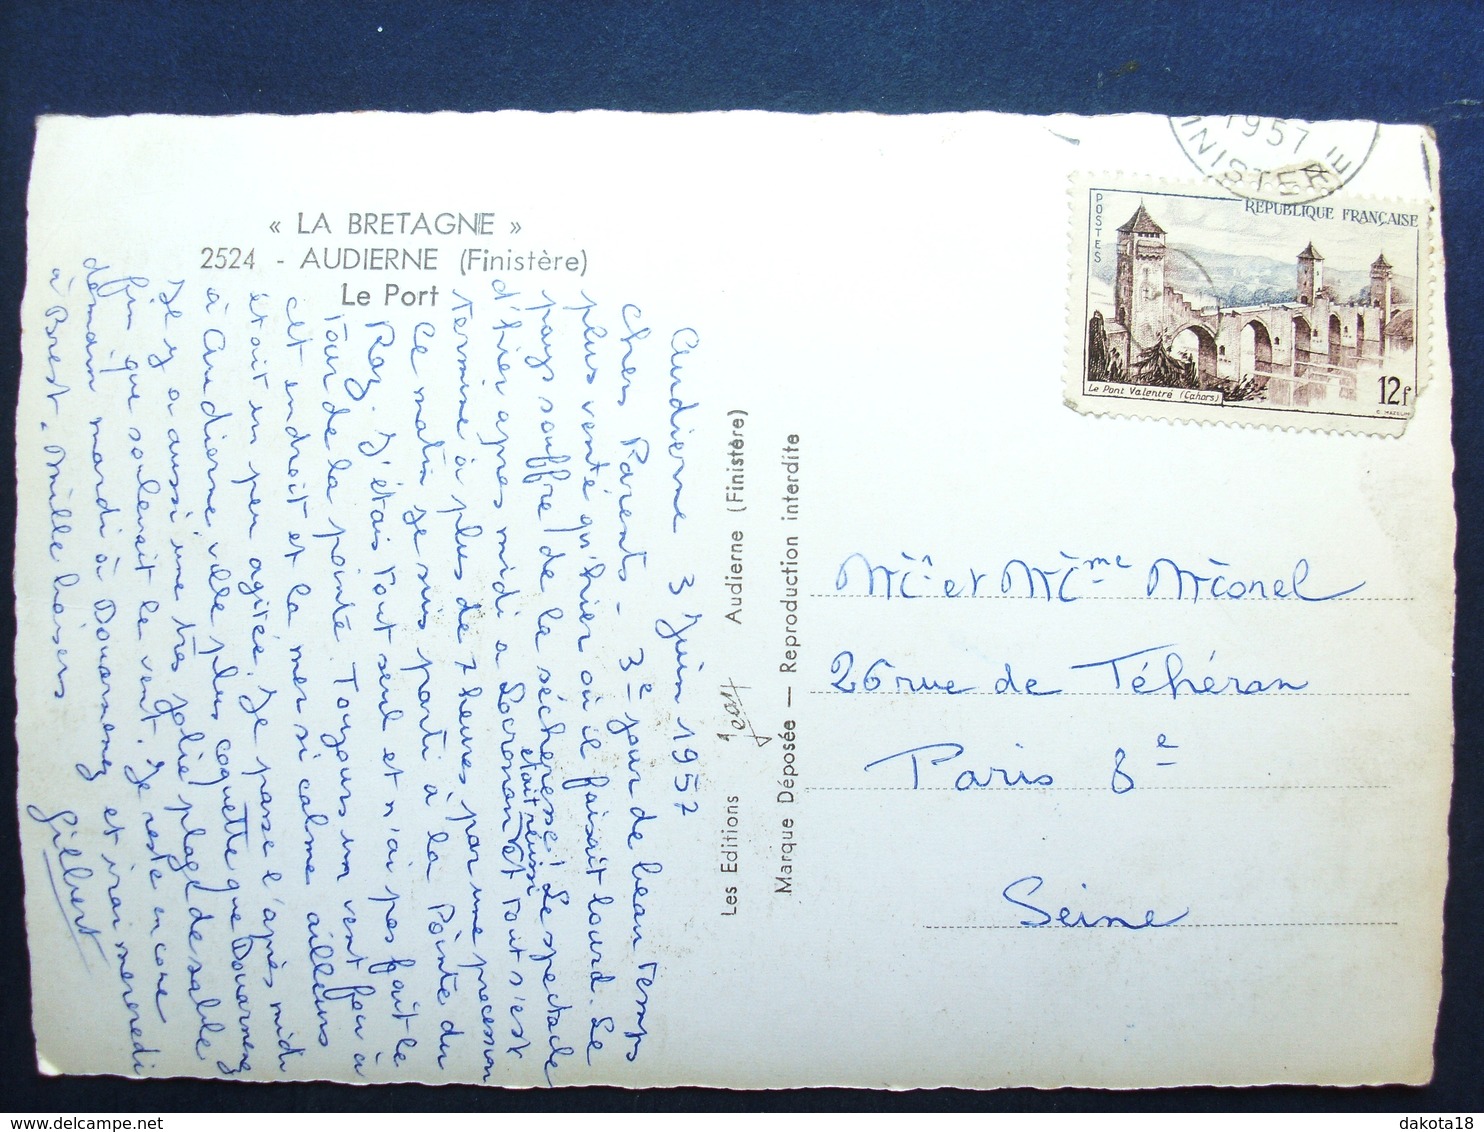 « LA BRETAGNE »
2524 - AUDIERNE (Finistère)
Le Port
Audierne 3 Juin 1957
Chers Parents - 3e jour de beau temps
plus venté qu'hier où il faisait lourd. Le
pays souffre de la sécheresse! Le spectacle
d'hier après midi à Locronan était réussi et tout s'est
terminé à plus de 7 heures, par une procession
Ce matin je suis parti à la Pointe du
Raz. J'étais tout seul et n'ai pas fait le
tour de la pointe. Toujours un vent fou à
cet endroit et la mer si calme ailleurs
était un peu agitée. Je passe l'après midi
à Audierne, ville plus coquette que Douarnenez
Il y a aussi une très jolie plage de sable
fin que soulevait le vent. Je reste encore
demain mardi à Douarnenez et irai mercredi
à Brest. Mille baisers
Gilbert
Les Editions Jean Audierne (Finistère)
Marque Déposée — Reproduction interdite
1957
FINISTERE
POSTES
REPUBLIQUE FRANÇAISE
Le Pont Valentré (Cahors)
12f
C. MAZELIN
Mr et Mme Monel
26 rue de Téhéran
Paris 8e
Seine
delcampe.net
dakota18